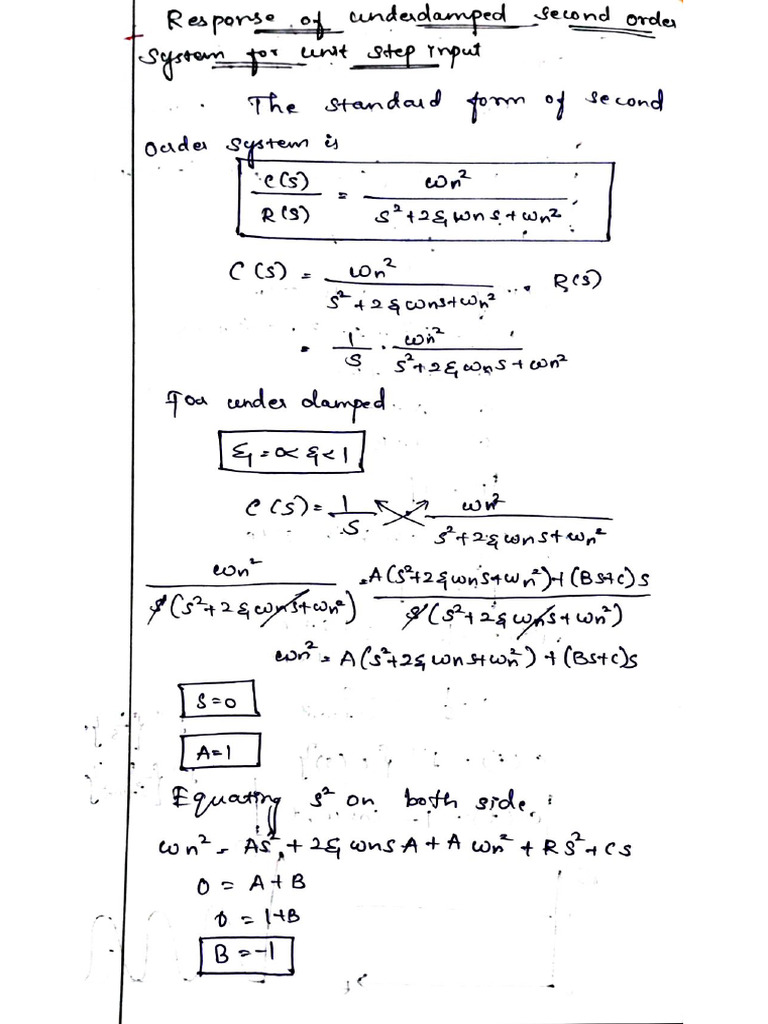 Response of underdamped second order
system for unit step input
The standard form of second
order system is
C(S)/R(S) = ωn²/(s²+2ξωns+ωn²)
C(S) = ωn²/(s²+2ξωns+ωn²) . R(S)
= 1/S . ωn²/(s²+2ξωns+ωn²)
For under damped.
ξ = 0<ξ<1
C(S) = 1/S ωn²/(s²+2ξωns+ωn²)
ωn²/(s(s²+2ξωns+ωn²)) = (A(s²+2ξωns+ωn²)+(Bs+c)s)/(s(s²+2ξωns+ωn²))
ωn² = A(s²+2ξωns+ωn²)+(Bs+c)s
S=0
A=1
Equating s² on both side.
ωn² = As²+2ξωnsA+Aωn²+Bs²+Cs
0 = A+B
0 = 1+B
B = -1